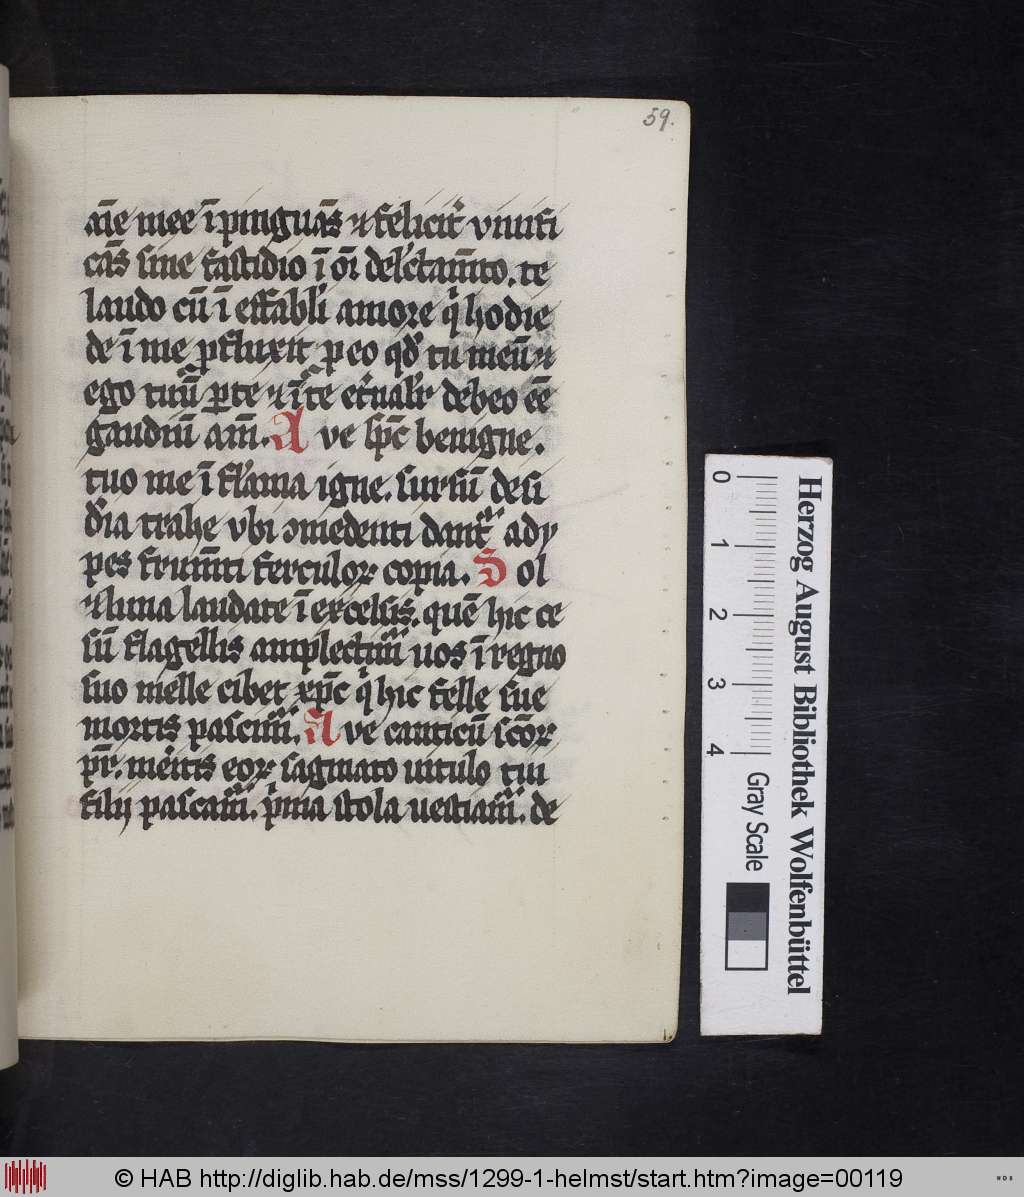 59.
aīe mee ī pinguās ⁊ felicit᷑ viuifi
cās sine fastidio ī oī delc̄tam̄to. te
laudo cū ī effabli amore q̇ hodie
de ī me ꝓfluxit ꝓ eo qd̓ tu meū ⁊
ego tuū ꝑ te ⁊ ī te et̓nalit᷑ debeo eē
gaudiū am̄. A ve spc̄ benigne.
tuo me ī flāma igne. sursū desi
d̓ia trahe vbi ꝯmedenti dant᷑ ady
pes frum̄ti ferculoꝝ copia. S ol
⁊ luna laudate ī excelsis. quē hic ce
sū flagellis amplectim᷑ uos ī regno
suo melle cibet xp̄c q̇ hic felle sue
mortis pascim᷑. A ve canticū sc̄oꝝ
pr̄. mėitis eoꝝ saginato uitulo tui
filij pascam᷑. ṗma stola uestiam᷑. de
Herzog August Bibliothek Wolfenbüttel
0 1 2 3 4
Gray Scale
© HAB http://diglib.hab.de/mss/1299-1-helmst/start.htm?image=00119